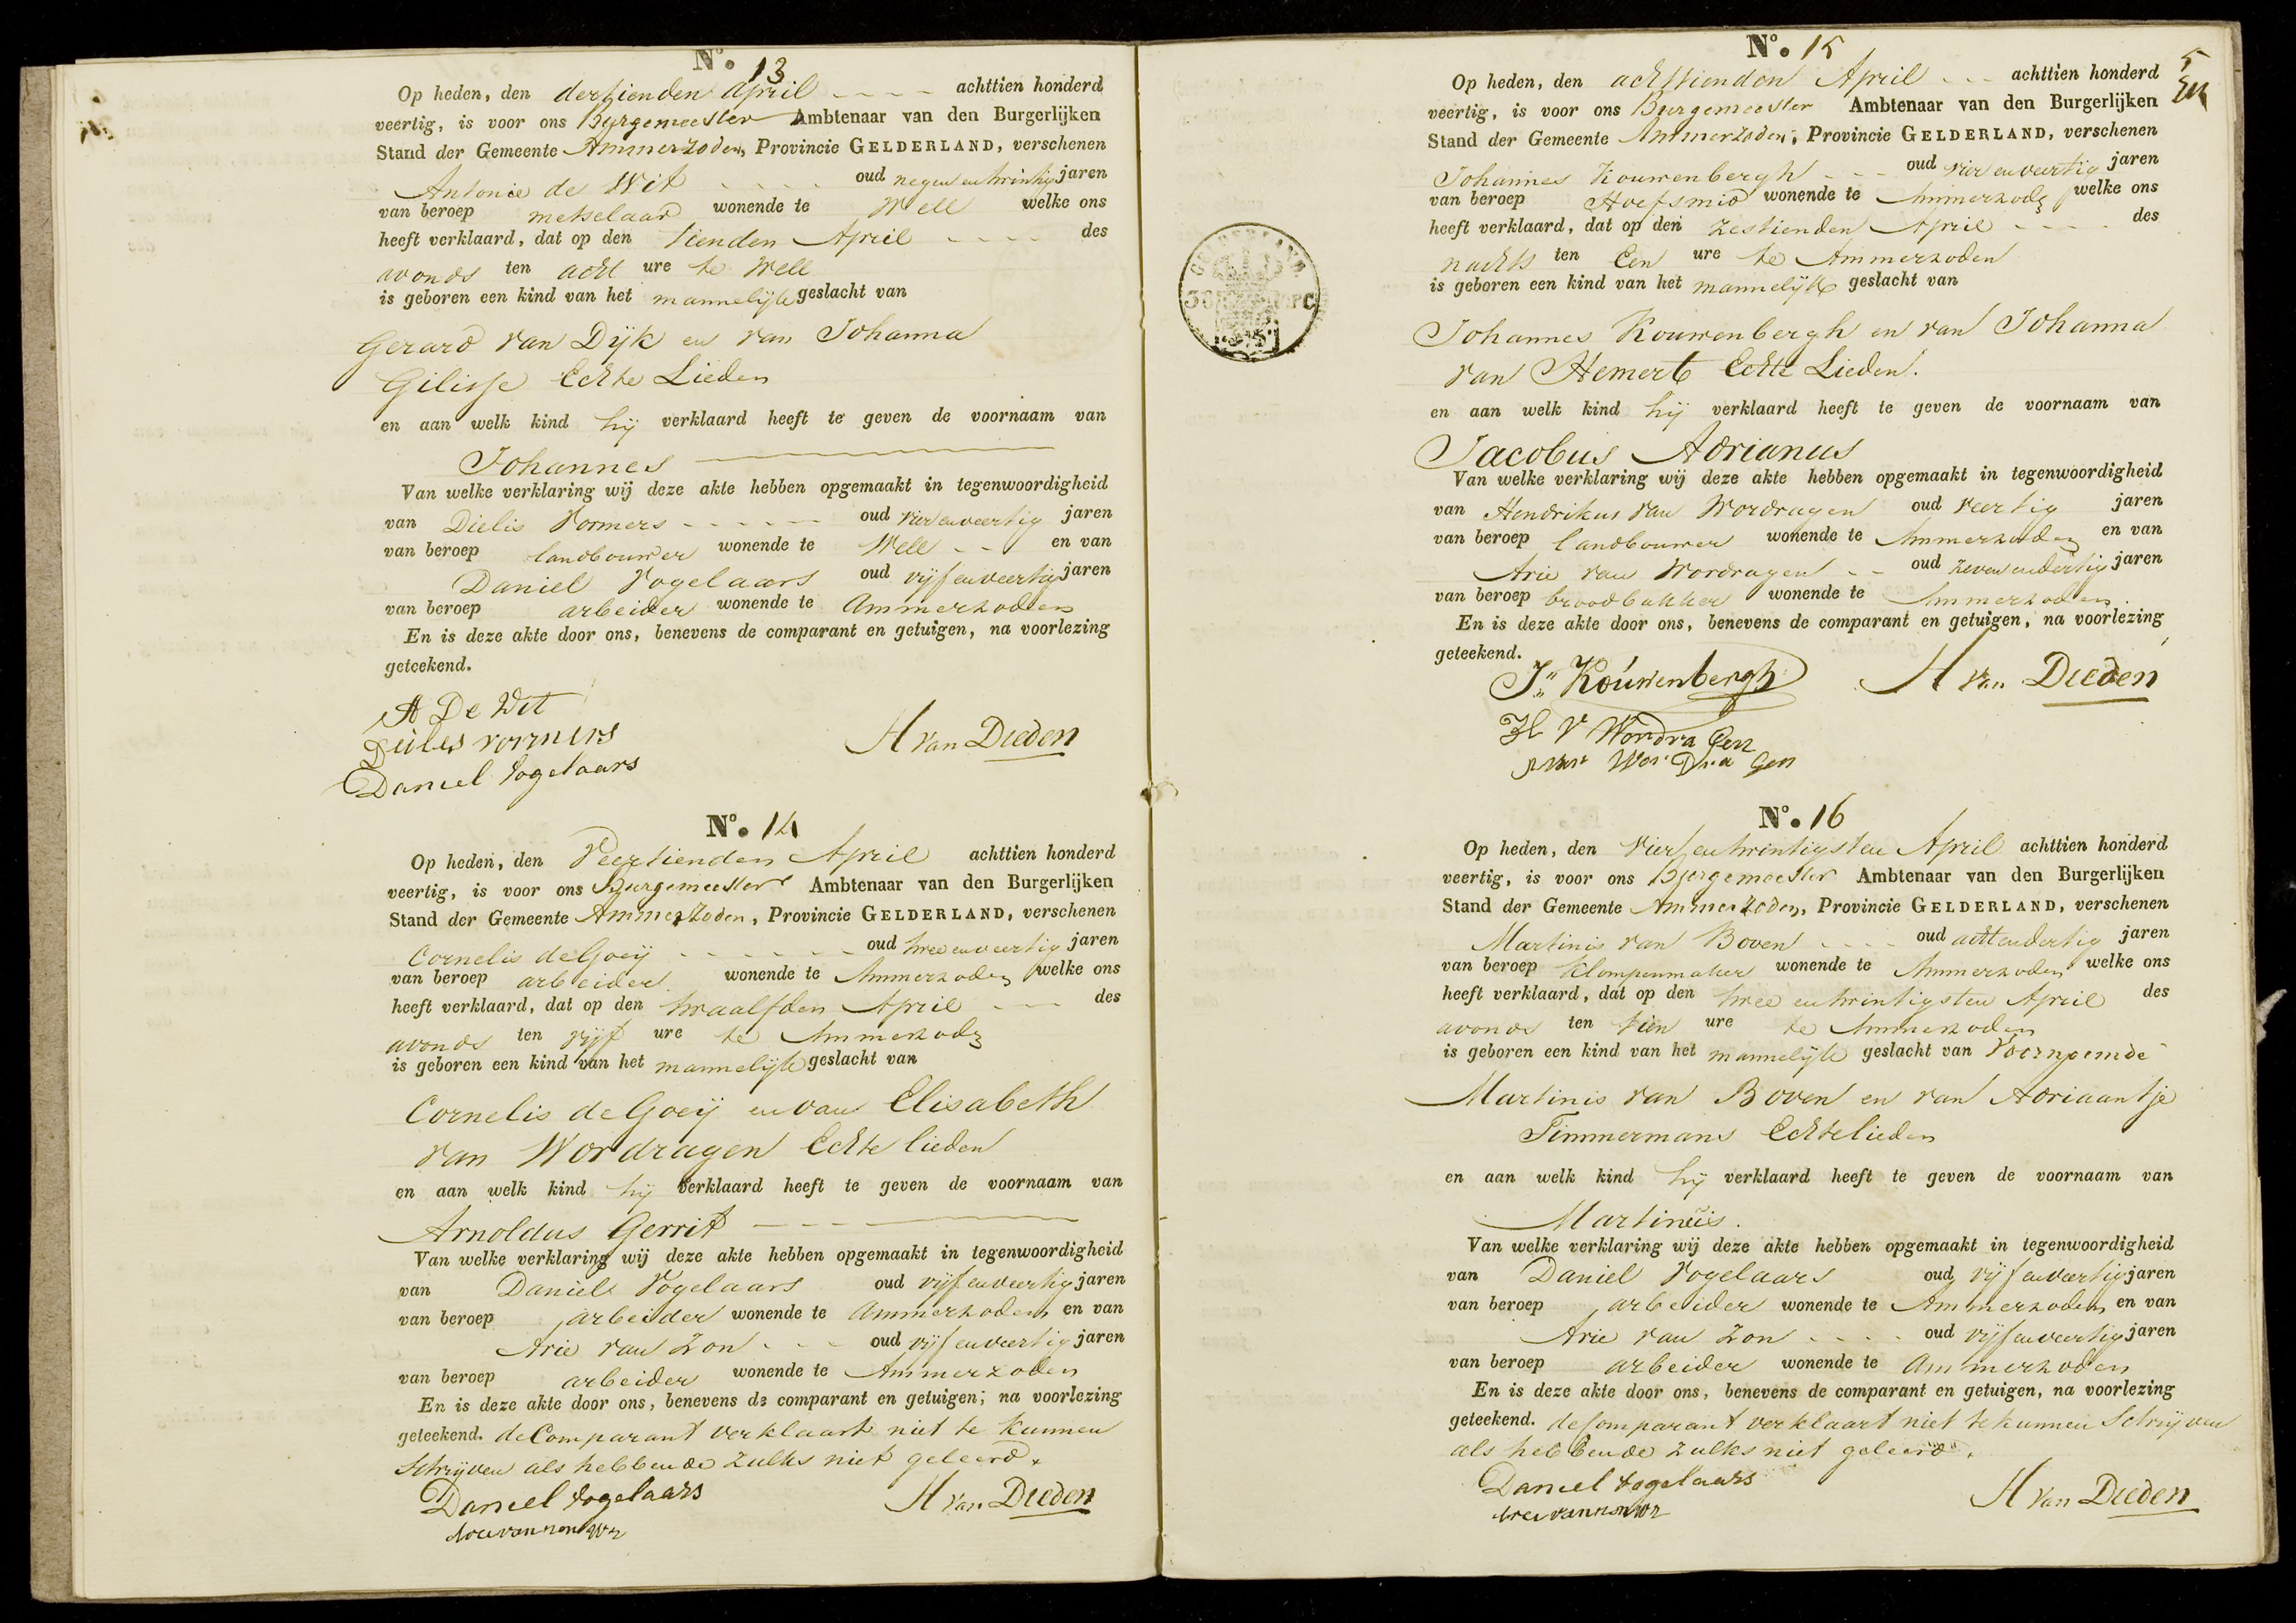 No. 13
Op heden, den dertienden April achttien honderd
veertig, is voor ons Burgemeester Ambtenaar van den Burgerlijken
Stand der Gemeente Ammerzoden, Provincie GELDERLAND, verschenen
Antonie de Wit oud negen en twintig jaren
van beroep metselaar wonende te Well welke ons
heeft verklaard, dat op den tienden April des
avonds ten acht ure te Well
is geboren een kind van het mannelijke geslacht van
Gerard van Dijk en van Johanna
Gilisse Echte Lieden
en aan welk kind hij verklaard heeft te geven de voornaam van
Johannes
Van welke verklaring wij deze akte hebben opgemaakt in tegenwoordigheid
van Dielis Vormers oud vier en veertig jaren
van beroep landbouwer wonende te Well en van
Daniel Vogelaars oud vijf en veertig jaren
van beroep arbeider wonende te Ammerzoden
En is deze akte door ons, benevens de comparant en getuigen, na voorlezing
geteekend.
A De Wit
Deiles vormers
Daniel Vogelaars
H van Dieden
No. 14
Op heden, den Veertienden April achttien honderd
veertig, is voor ons Burgemeester Ambtenaar van den Burgerlijken
Stand der Gemeente Ammerzoden, Provincie GELDERLAND, verschenen
Cornelis de Goeij oud twee en veertig jaren
van beroep arbeider wonende te Ammerzoden welke ons
heeft verklaard, dat op den twaalfden April des
avonds ten vijf ure te Ammerzoden
is geboren een kind van het mannelijke geslacht van
Cornelis de Goeij en van Elisabeth
van Wordragen Echte lieden
en aan welk kind hij verklaard heeft te geven de voornaam van
Arnoldus Gerrit
Van welke verklaring wij deze akte hebben opgemaakt in tegenwoordigheid
van Daniel Vogelaars oud vijf en veertig jaren
van beroep arbeider wonende te Ammerzoden en van
Arie van Zon oud vijf en veertig jaren
van beroep arbeider wonende te Ammerzoden
En is deze akte door ons, benevens de comparant en getuigen, na voorlezing
geteekend. de Comparant verklaart niet te kunnen
Schrijven als hebbende zulks niet geleerd.
Daniel Vogelaars
H van Dieden
GELDERLAND
No. 15
5
Op heden, den achttienden April achttien honderd
veertig, is voor ons Burgemeester Ambtenaar van den Burgerlijken
Stand der Gemeente Ammerzoden, Provincie GELDERLAND, verschenen
Johannes Kouwenbergh oud vier en veertig jaren
van beroep Hoefsmid wonende te Ammerzoden welke ons
heeft verklaard, dat op den zestienden April des
nachts ten Een ure te Ammerzoden
is geboren een kind van het mannelijke geslacht van
Johannes Kouwenbergh en van Johanna
van Hemert Echte Lieden.
en aan welk kind hij verklaard heeft te geven de voornaam van
Jacobus Adrianus
Van welke verklaring wij deze akte hebben opgemaakt in tegenwoordigheid
van Hendrikus van Wordragen oud veertig jaren
van beroep landbouwer wonende te Ammerzoden en van
Arie van Wordragen oud zeven en dertig jaren
van beroep broodbakker wonende te Ammerzoden.
En is deze akte door ons, benevens de comparant en getuigen, na voorlezing
geteekend.
J. Kouwenbergh H van Dieden
H V Wordra Gen
Wor Dra Gen
No. 16
Op heden, den vier en twintigsten April achttien honderd
veertig, is voor ons Burgemeester Ambtenaar van den Burgerlijken
Stand der Gemeente Ammerzoden, Provincie GELDERLAND, verschenen
Martinis van Boven oud acht en dertig jaren
van beroep Klompenmaker wonende te Ammerzoden welke ons
heeft verklaard, dat op den twee en twintigsten April des
avonds ten tien ure te Ammerzoden
is geboren een kind van het mannelijke geslacht van Voornoemde
Martinis van Boven en van Adriaantje
Timmermans Echtelieden
en aan welk kind hij verklaard heeft te geven de voornaam van
Martinus.
Van welke verklaring wij deze akte hebben opgemaakt in tegenwoordigheid
van Daniel Vogelaars oud vijf en veertig jaren
van beroep arbeider wonende te Ammerzoden en van
Arie van Zon oud vijf en veertig jaren
van beroep arbeider wonende te Ammerzoden
En is deze akte door ons, benevens de comparant en getuigen, na voorlezing
geteekend. de Comparant verklaart niet te kunnen Schrijven
als hebbende zulks niet geleerd.
Daniel Vogelaars
H van Dieden